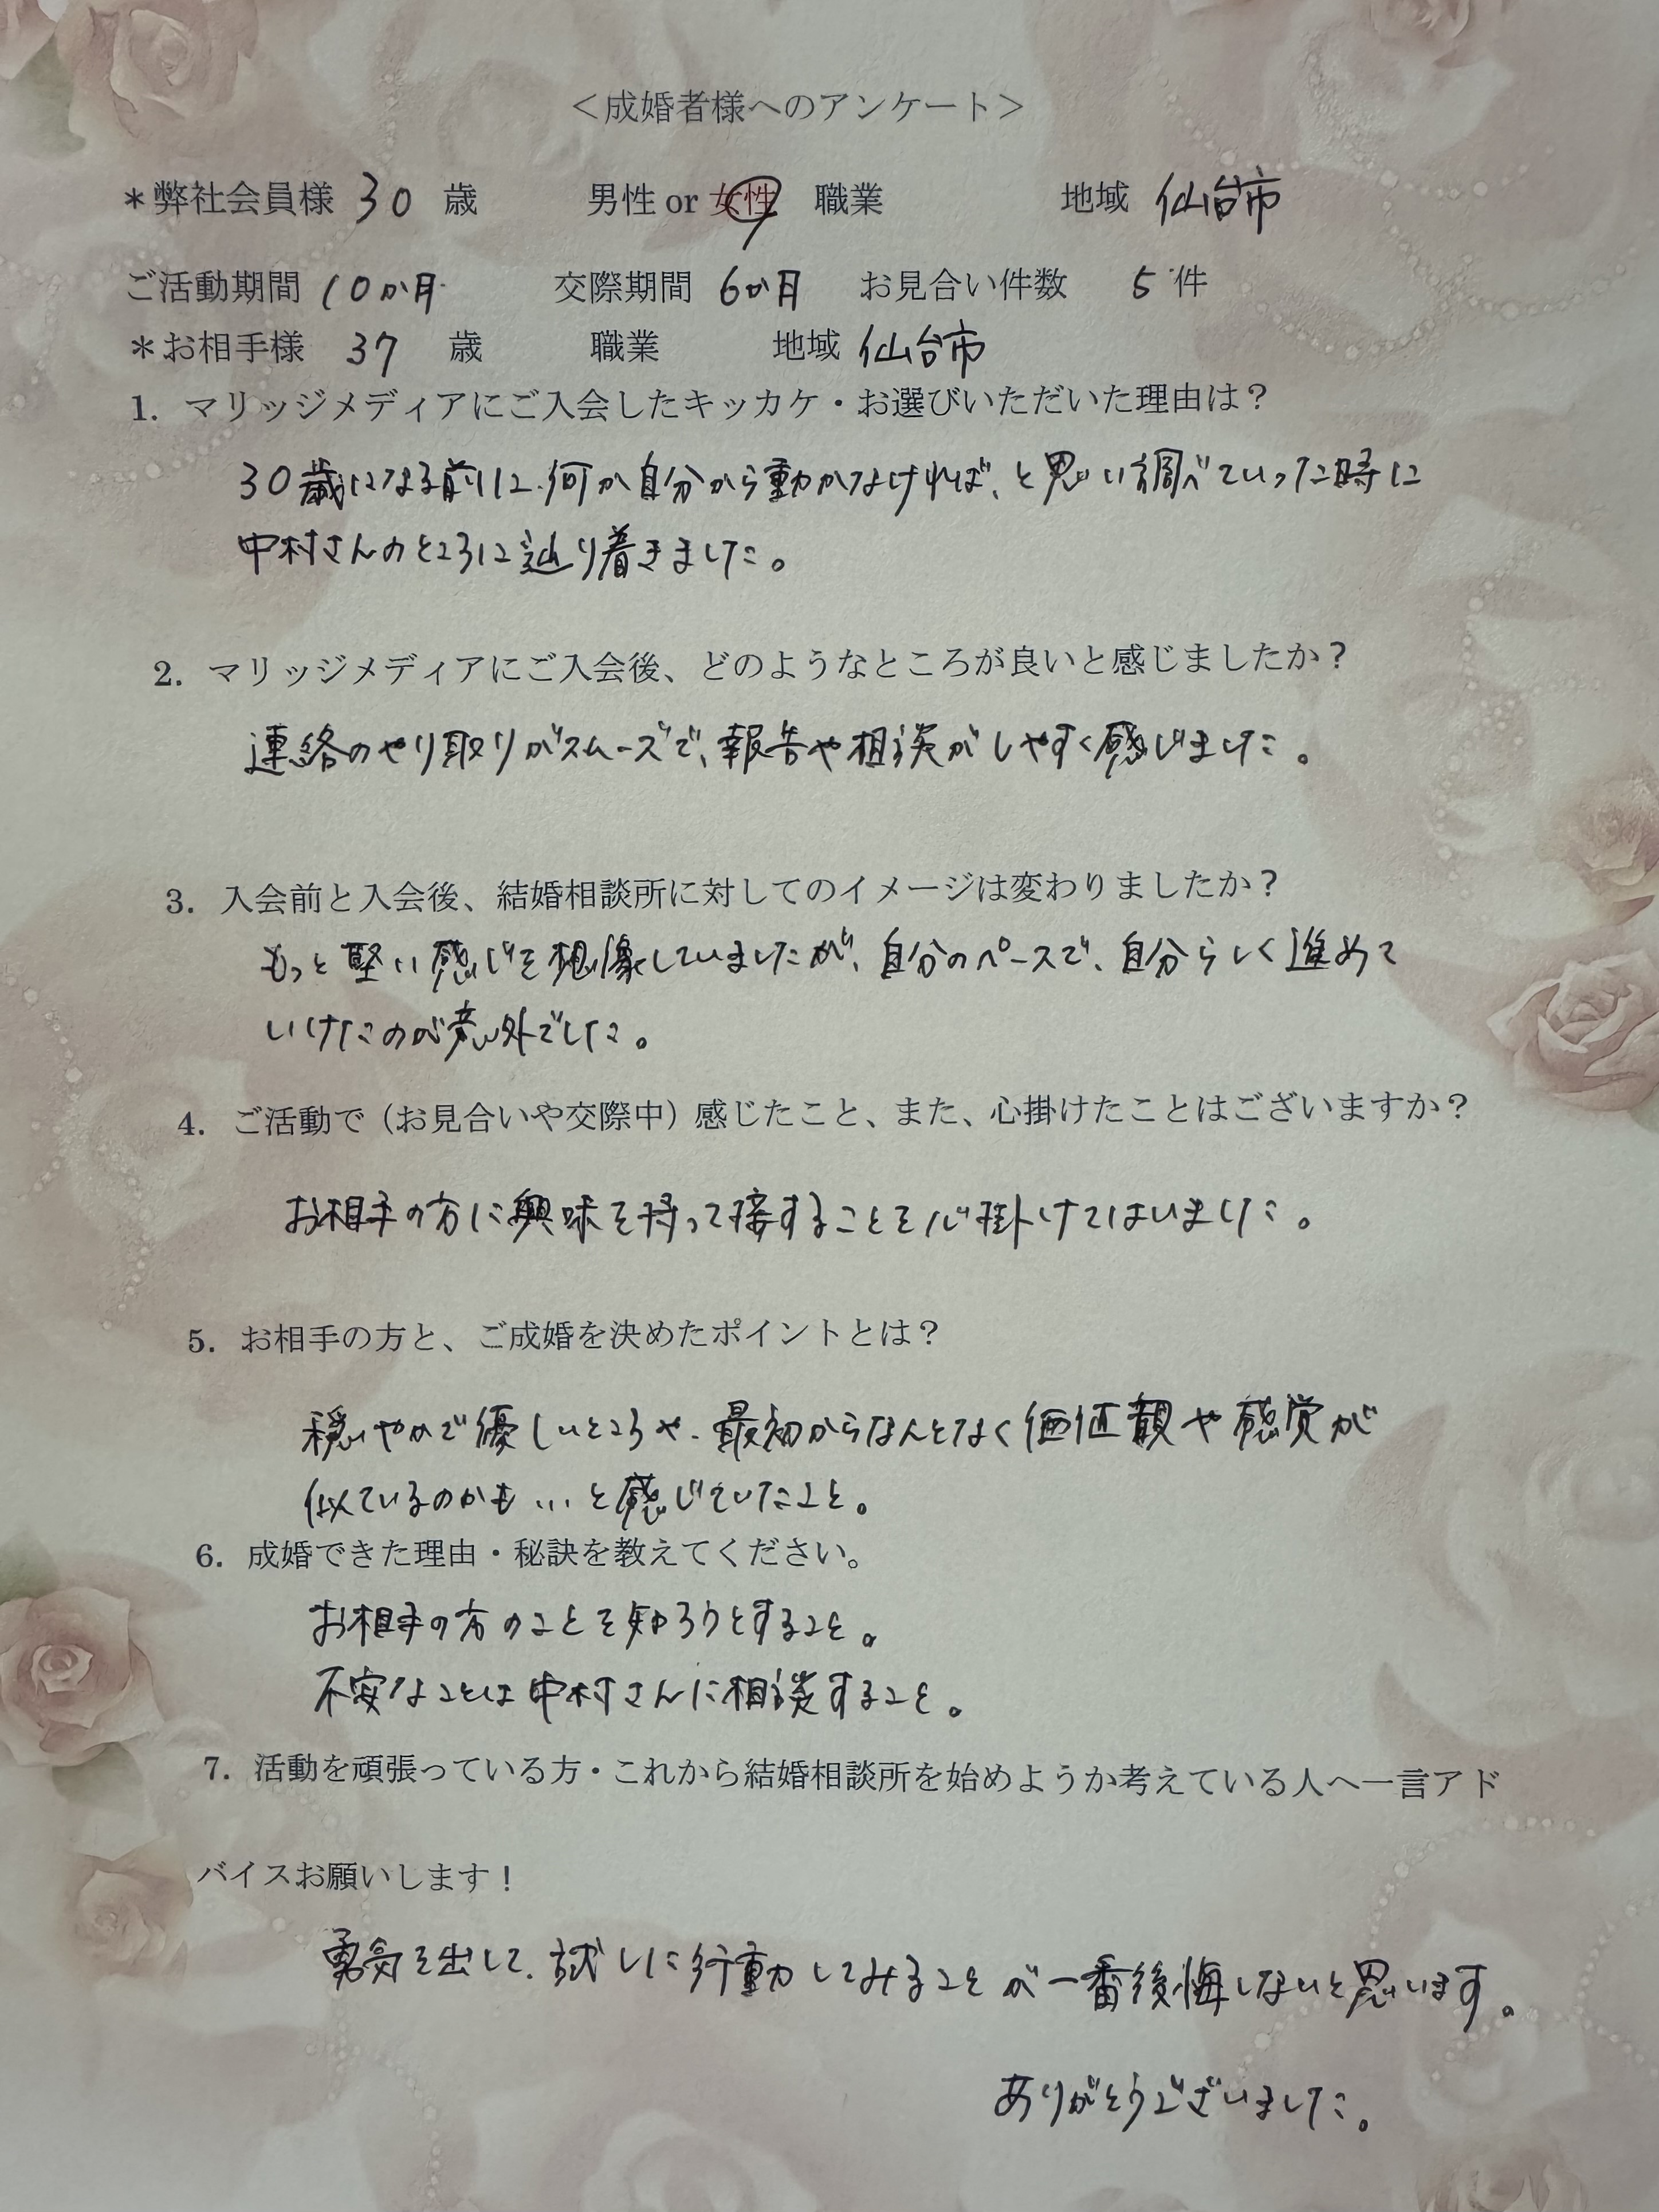 ＜成婚者様へのアンケート＞
＊弊社会員様 30 歳 男性 or 女性 職業 地域 仙台市
ご活動期間 10か月 交際期間 6か月 お見合い件数 5 件
＊お相手様 37 歳 職業 地域 仙台市
1. マリッジメディアにご入会したキッカケ・お選びいただいた理由は？
30歳になる前に、何か自分から動かなければ、と思い調べていった時に
中村さんのところに辿り着きました。
2. マリッジメディアにご入会後、どのようなところが良いと感じましたか？
連絡のやり取りがスムーズで、報告や相談がしやすく感じました。
3. 入会前と入会後、結婚相談所に対してのイメージは変わりましたか？
もっと堅い感じを想像していましたが、自分のペースで、自分らしく進めて
いけたのが意外でした。
4. ご活動で（お見合いや交際中）感じたこと、また、心掛けたことはございますか？
お相手の方に興味を持って接することを心掛けてはいました。
5. お相手の方と、ご成婚を決めたポイントとは？
穏やかで優しいところや、最初からなんとなく価値観や感覚が
似ているのかも…と感じていたこと。
6. 成婚できた理由・秘訣を教えてください。
お相手の方のことを知ろうとすること。
不安なことは中村さんに相談すること。
7. 活動を頑張っている方・これから結婚相談所を始めようか考えている人へ一言アド
バイスお願いします！
勇気を出して、試しに行動してみることが一番後悔しないと思います。
ありがとうございました。